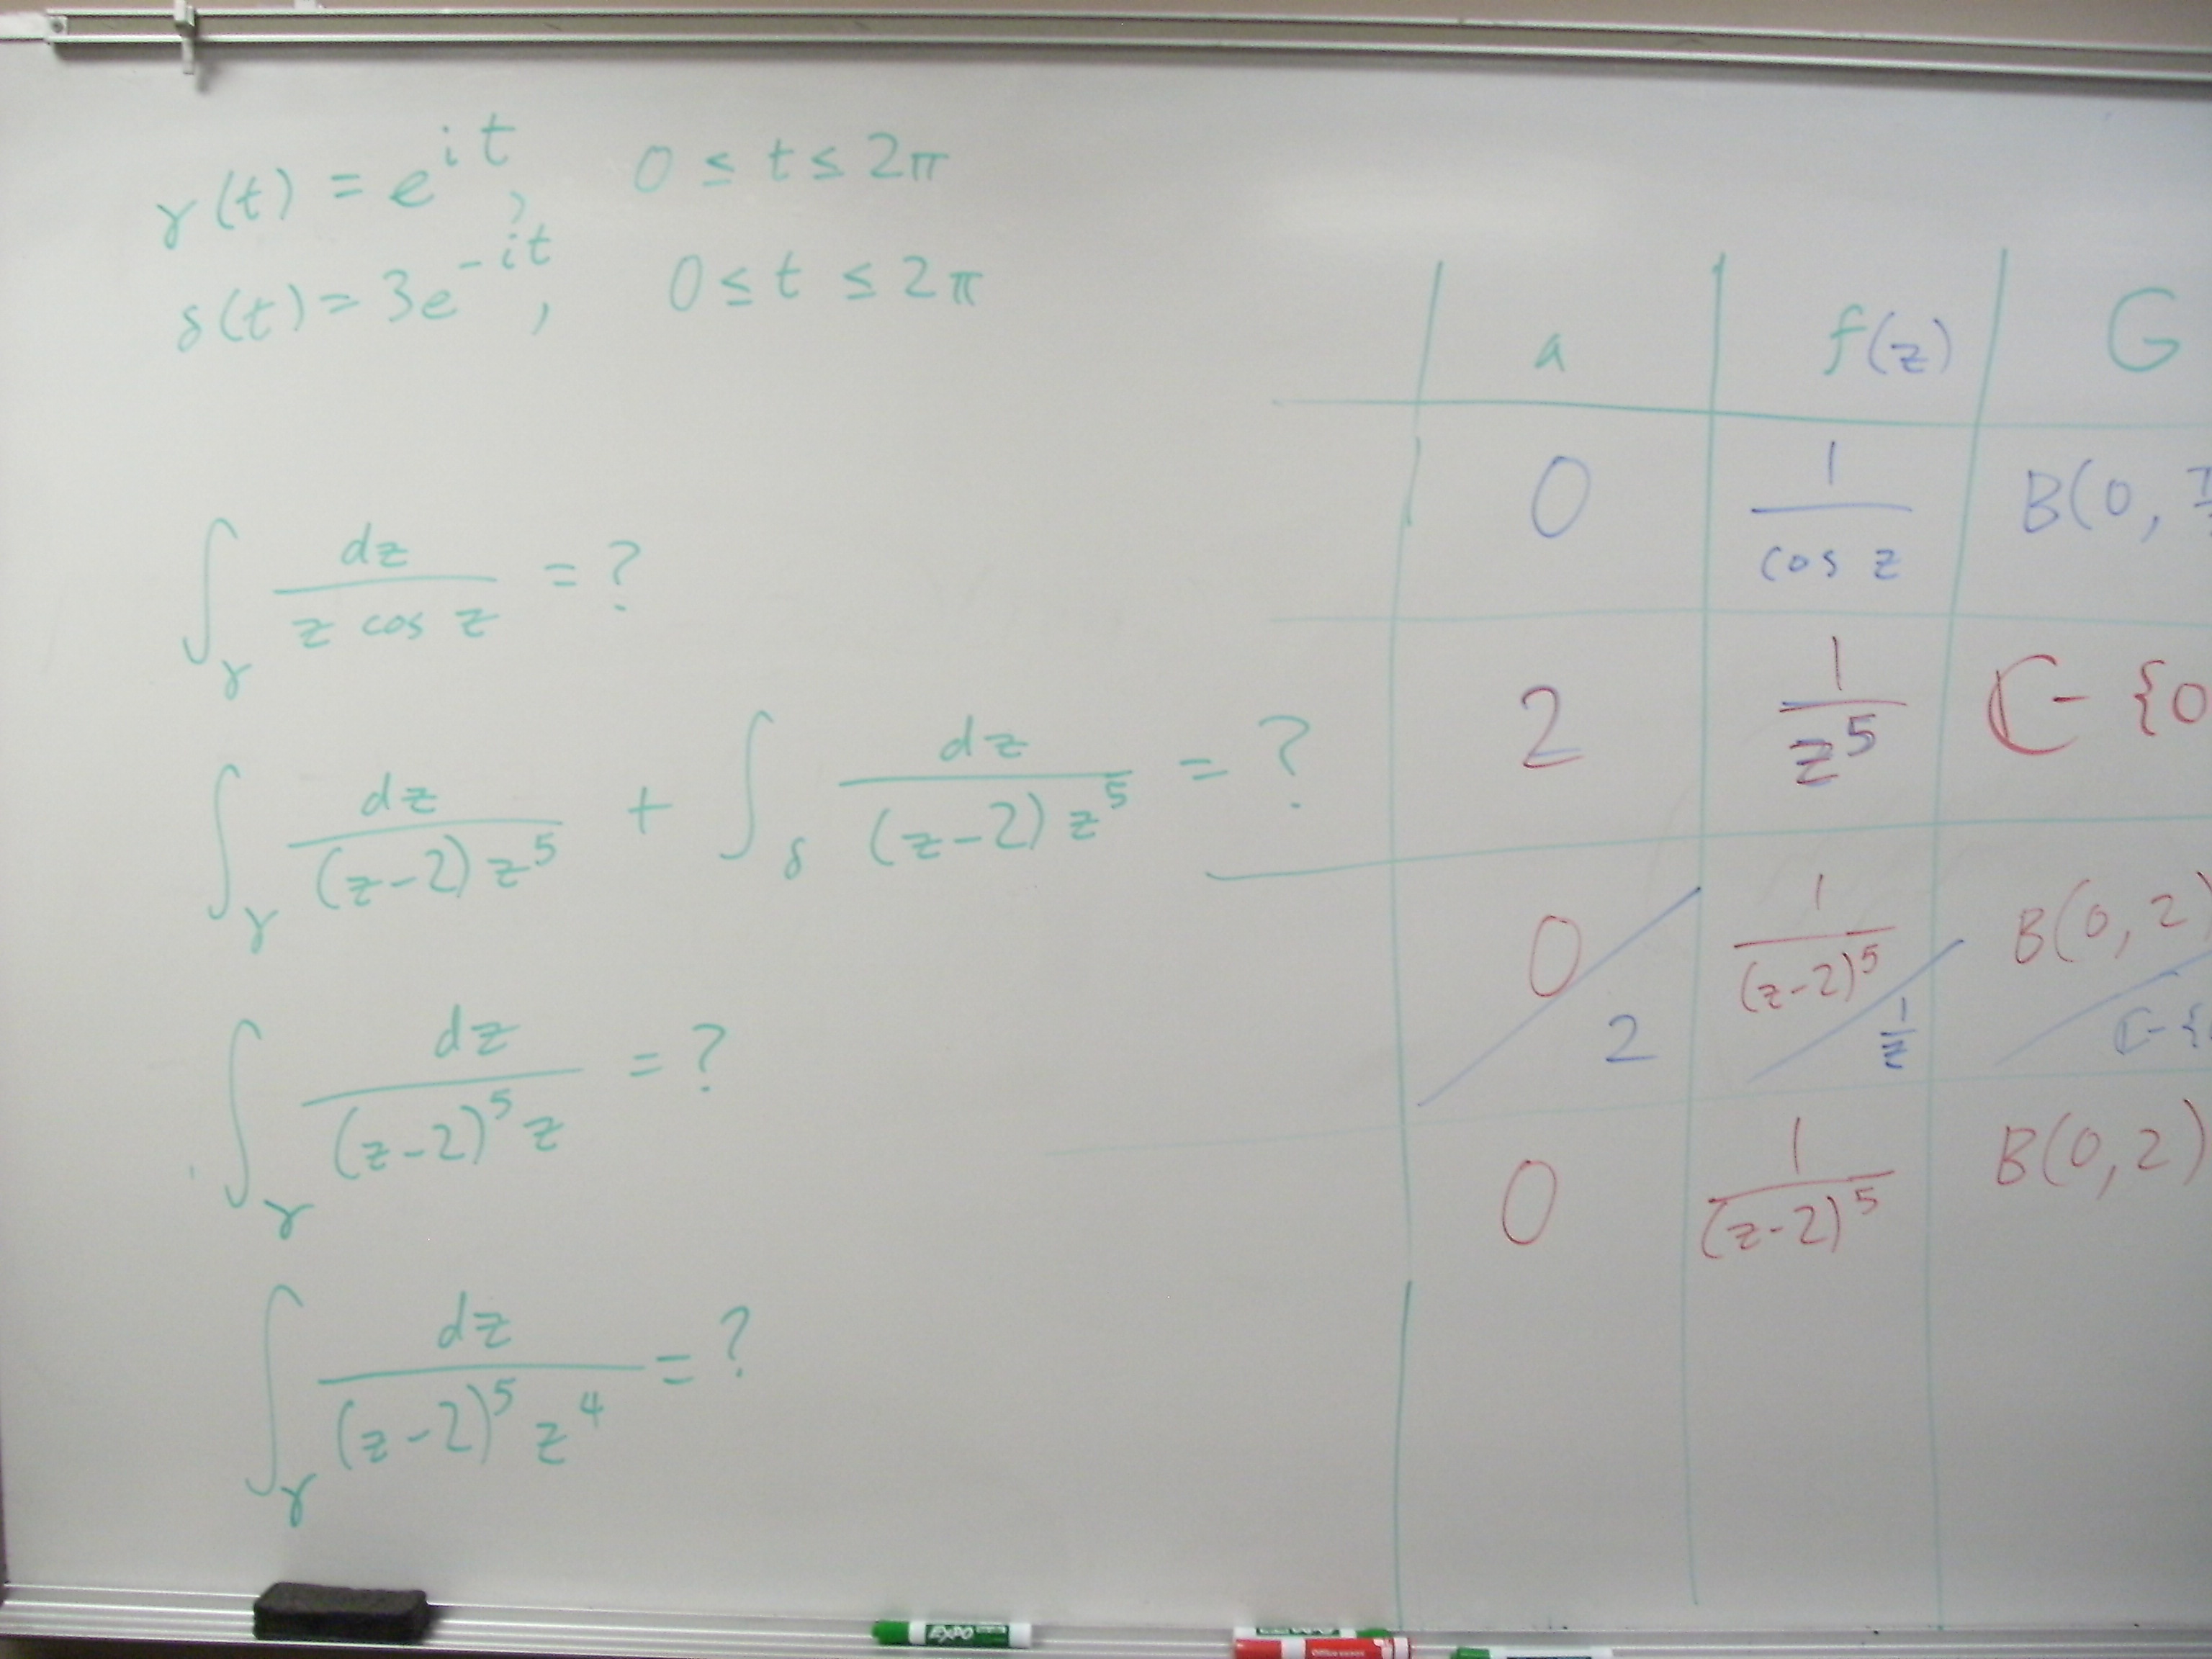 γ(t) = e^{it}, 0 ≤ t ≤ 2π
δ(t) = 3e^{-it}, 0 ≤ t ≤ 2π
∫_γ dz / (z cos z) = ?
∫_γ dz / ((z-2) z^5) + ∫_δ dz / ((z-2) z^5) = ?
∫_γ dz / ((z-2)^5 z) = ?
∫_γ dz / ((z-2)^5 z^4) = ?
a f(z) G
0 1/cos z B(0,
2 1/z^5 ℂ - {0
0 1/(z-2)^5 B(0, 2)
2 1/z ℂ-{
0 1/(z-2)^5 B(0, 2)
EXPO